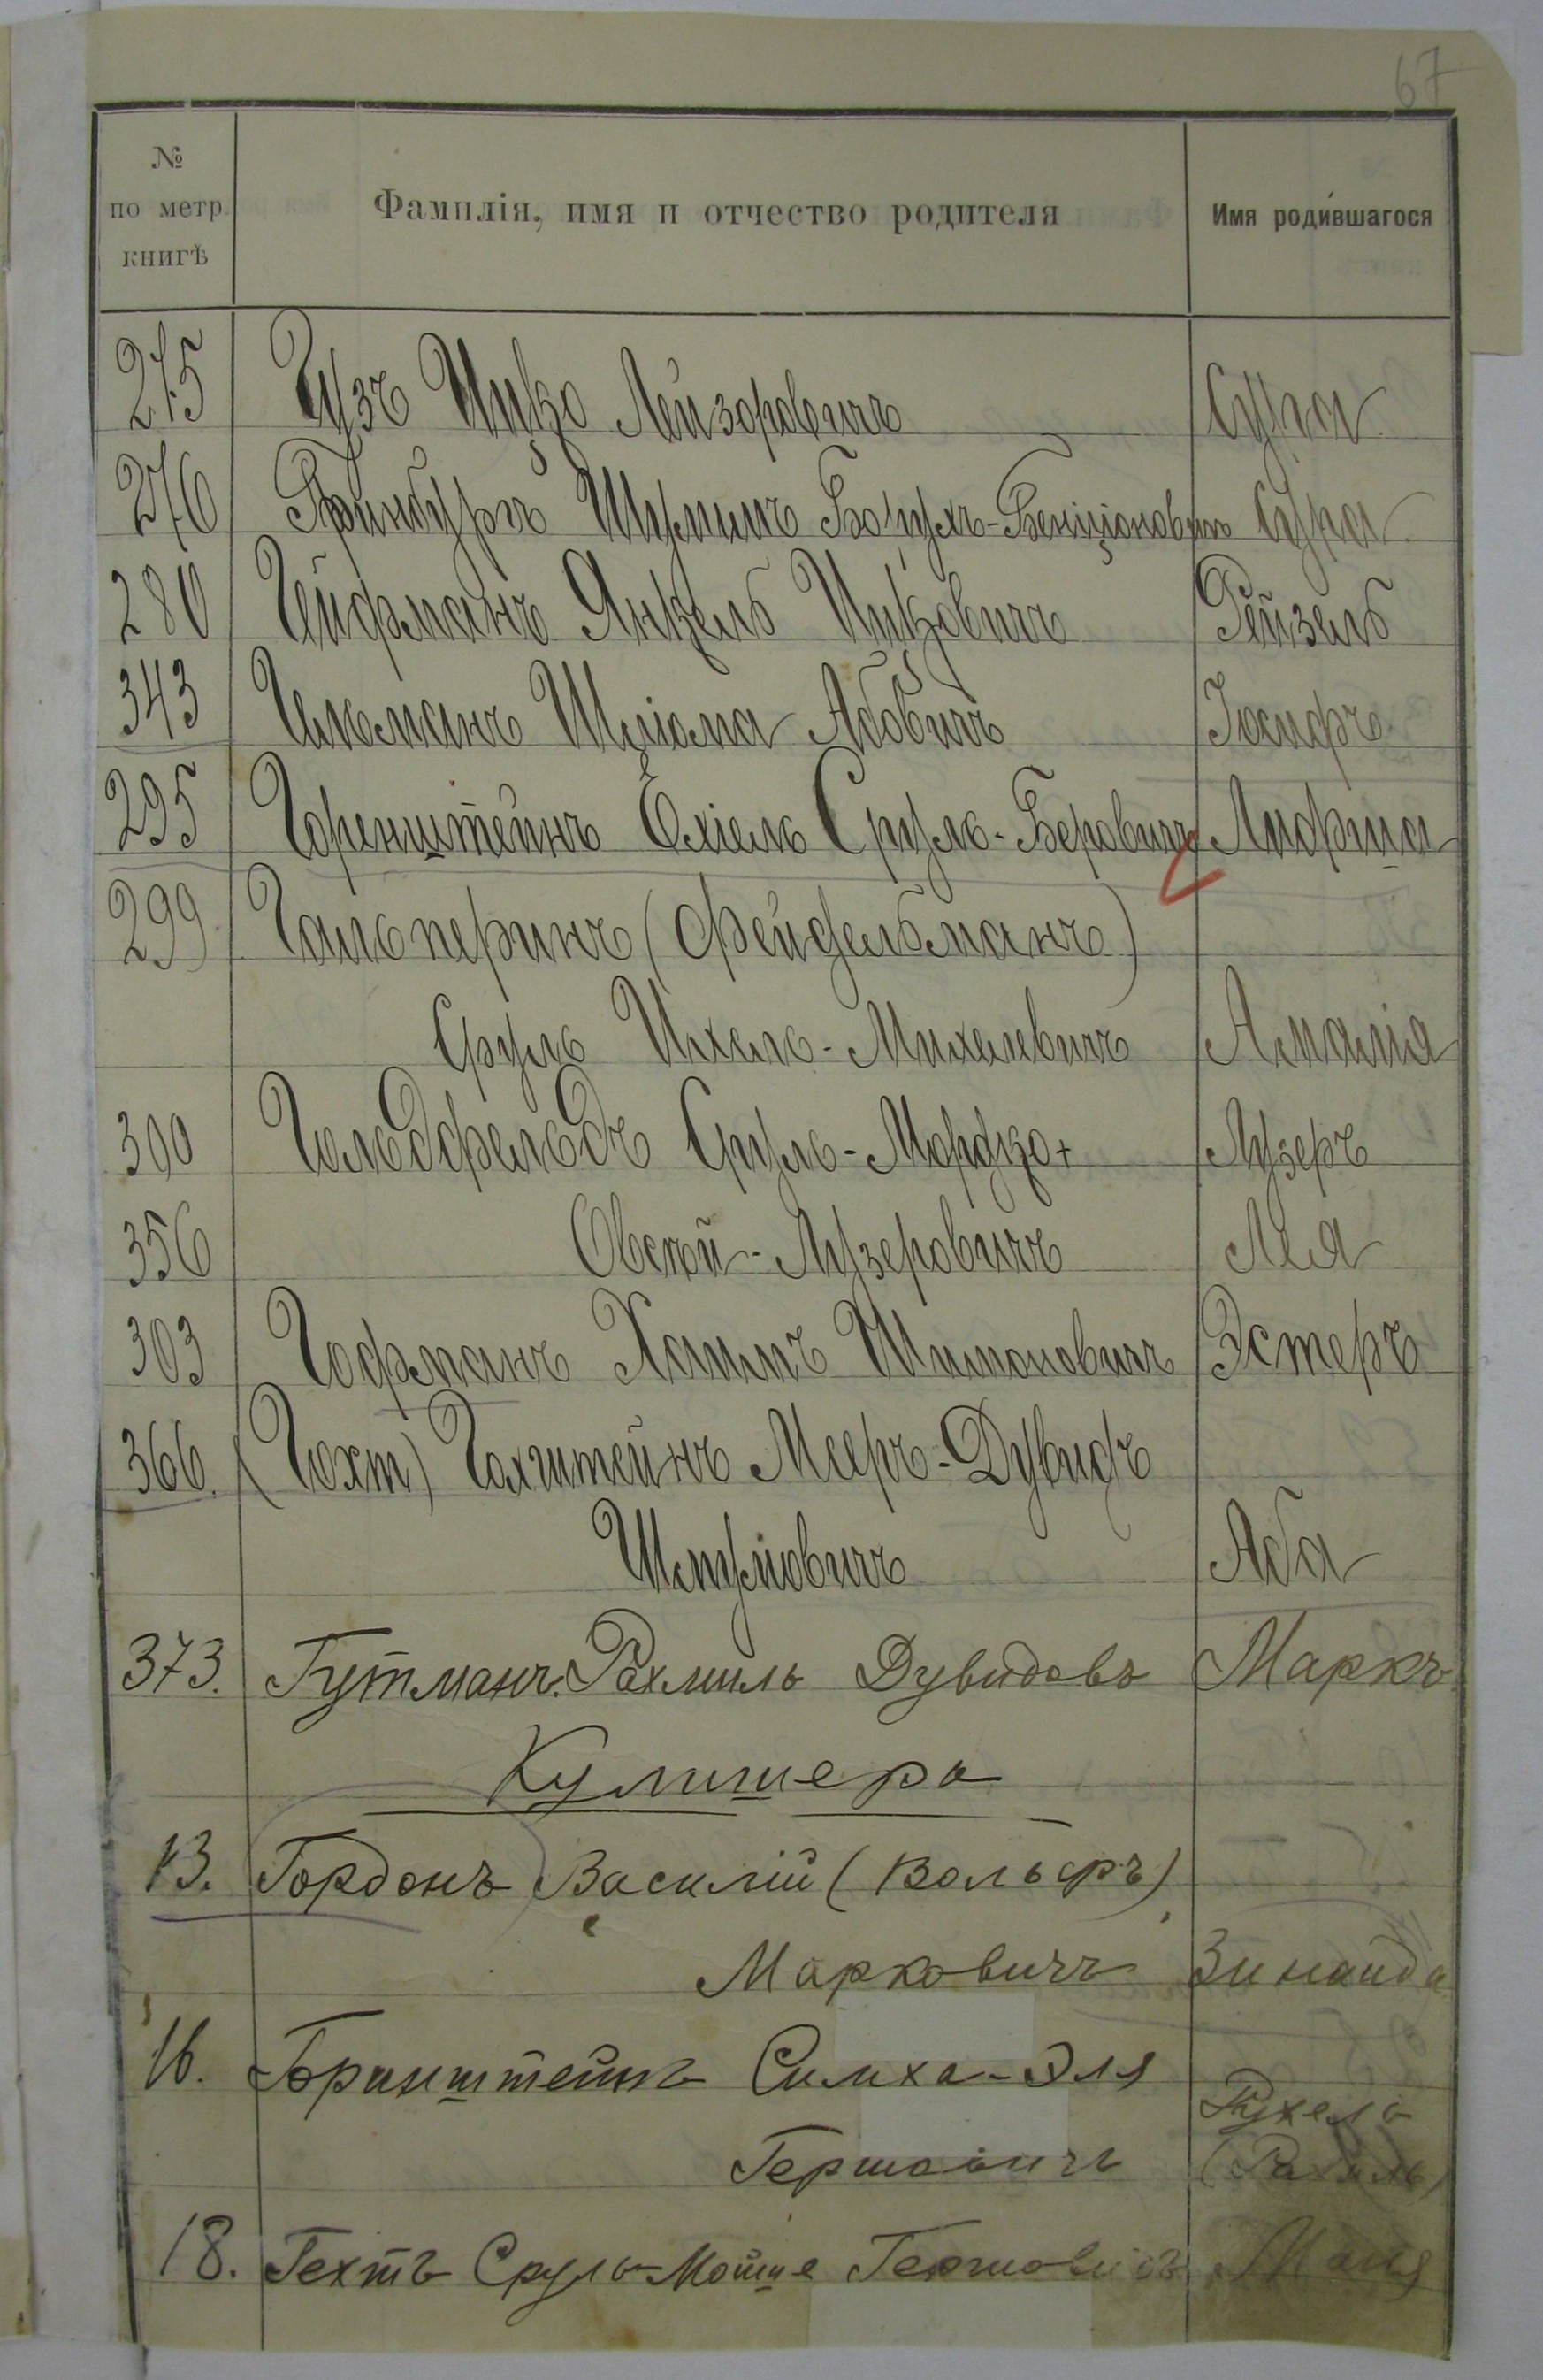 67
№ по метр. книгѣ Фамилія, имя и отчество родителя Имя родившагося
275 Гузъ Ицко Лейзоровичъ Сура
276 Гринбургъ Шулимъ Борухъ-Бенціоновичъ Сура
280 Гейфманъ Янкель Ицковичъ Рейзель
343 Гельманъ Шліома Абовичъ Іосифъ
295 Горенштейнъ Ехіель Сруль-Беровичъ Лифша
299 Гальперинъ (Фейдельманъ)
Сруль Ихель-Михелевичъ Амалія
300 Гольдфельдъ Сруль-Мордко+ Лузеръ
356 Овсѣй-Лузеровичъ Лея
303 Гофманъ Хаимъ Шимоновичъ Эстеръ
366. (Гохт) Гохштейнъ Мееръ-Дувидъ
Шмулiовичъ Аба
373. Гутманъ Рахмиль Дувидовъ Маркъ
Кулишера
13. Гордонъ Василій (Вольфъ)
Марковичъ Зинаида
16. Гринштейнъ Симха-Эля
Гершовичъ Рухель (Рахиль)
18. Гехтъ Сруль-Мойше Гершовичъ Маня